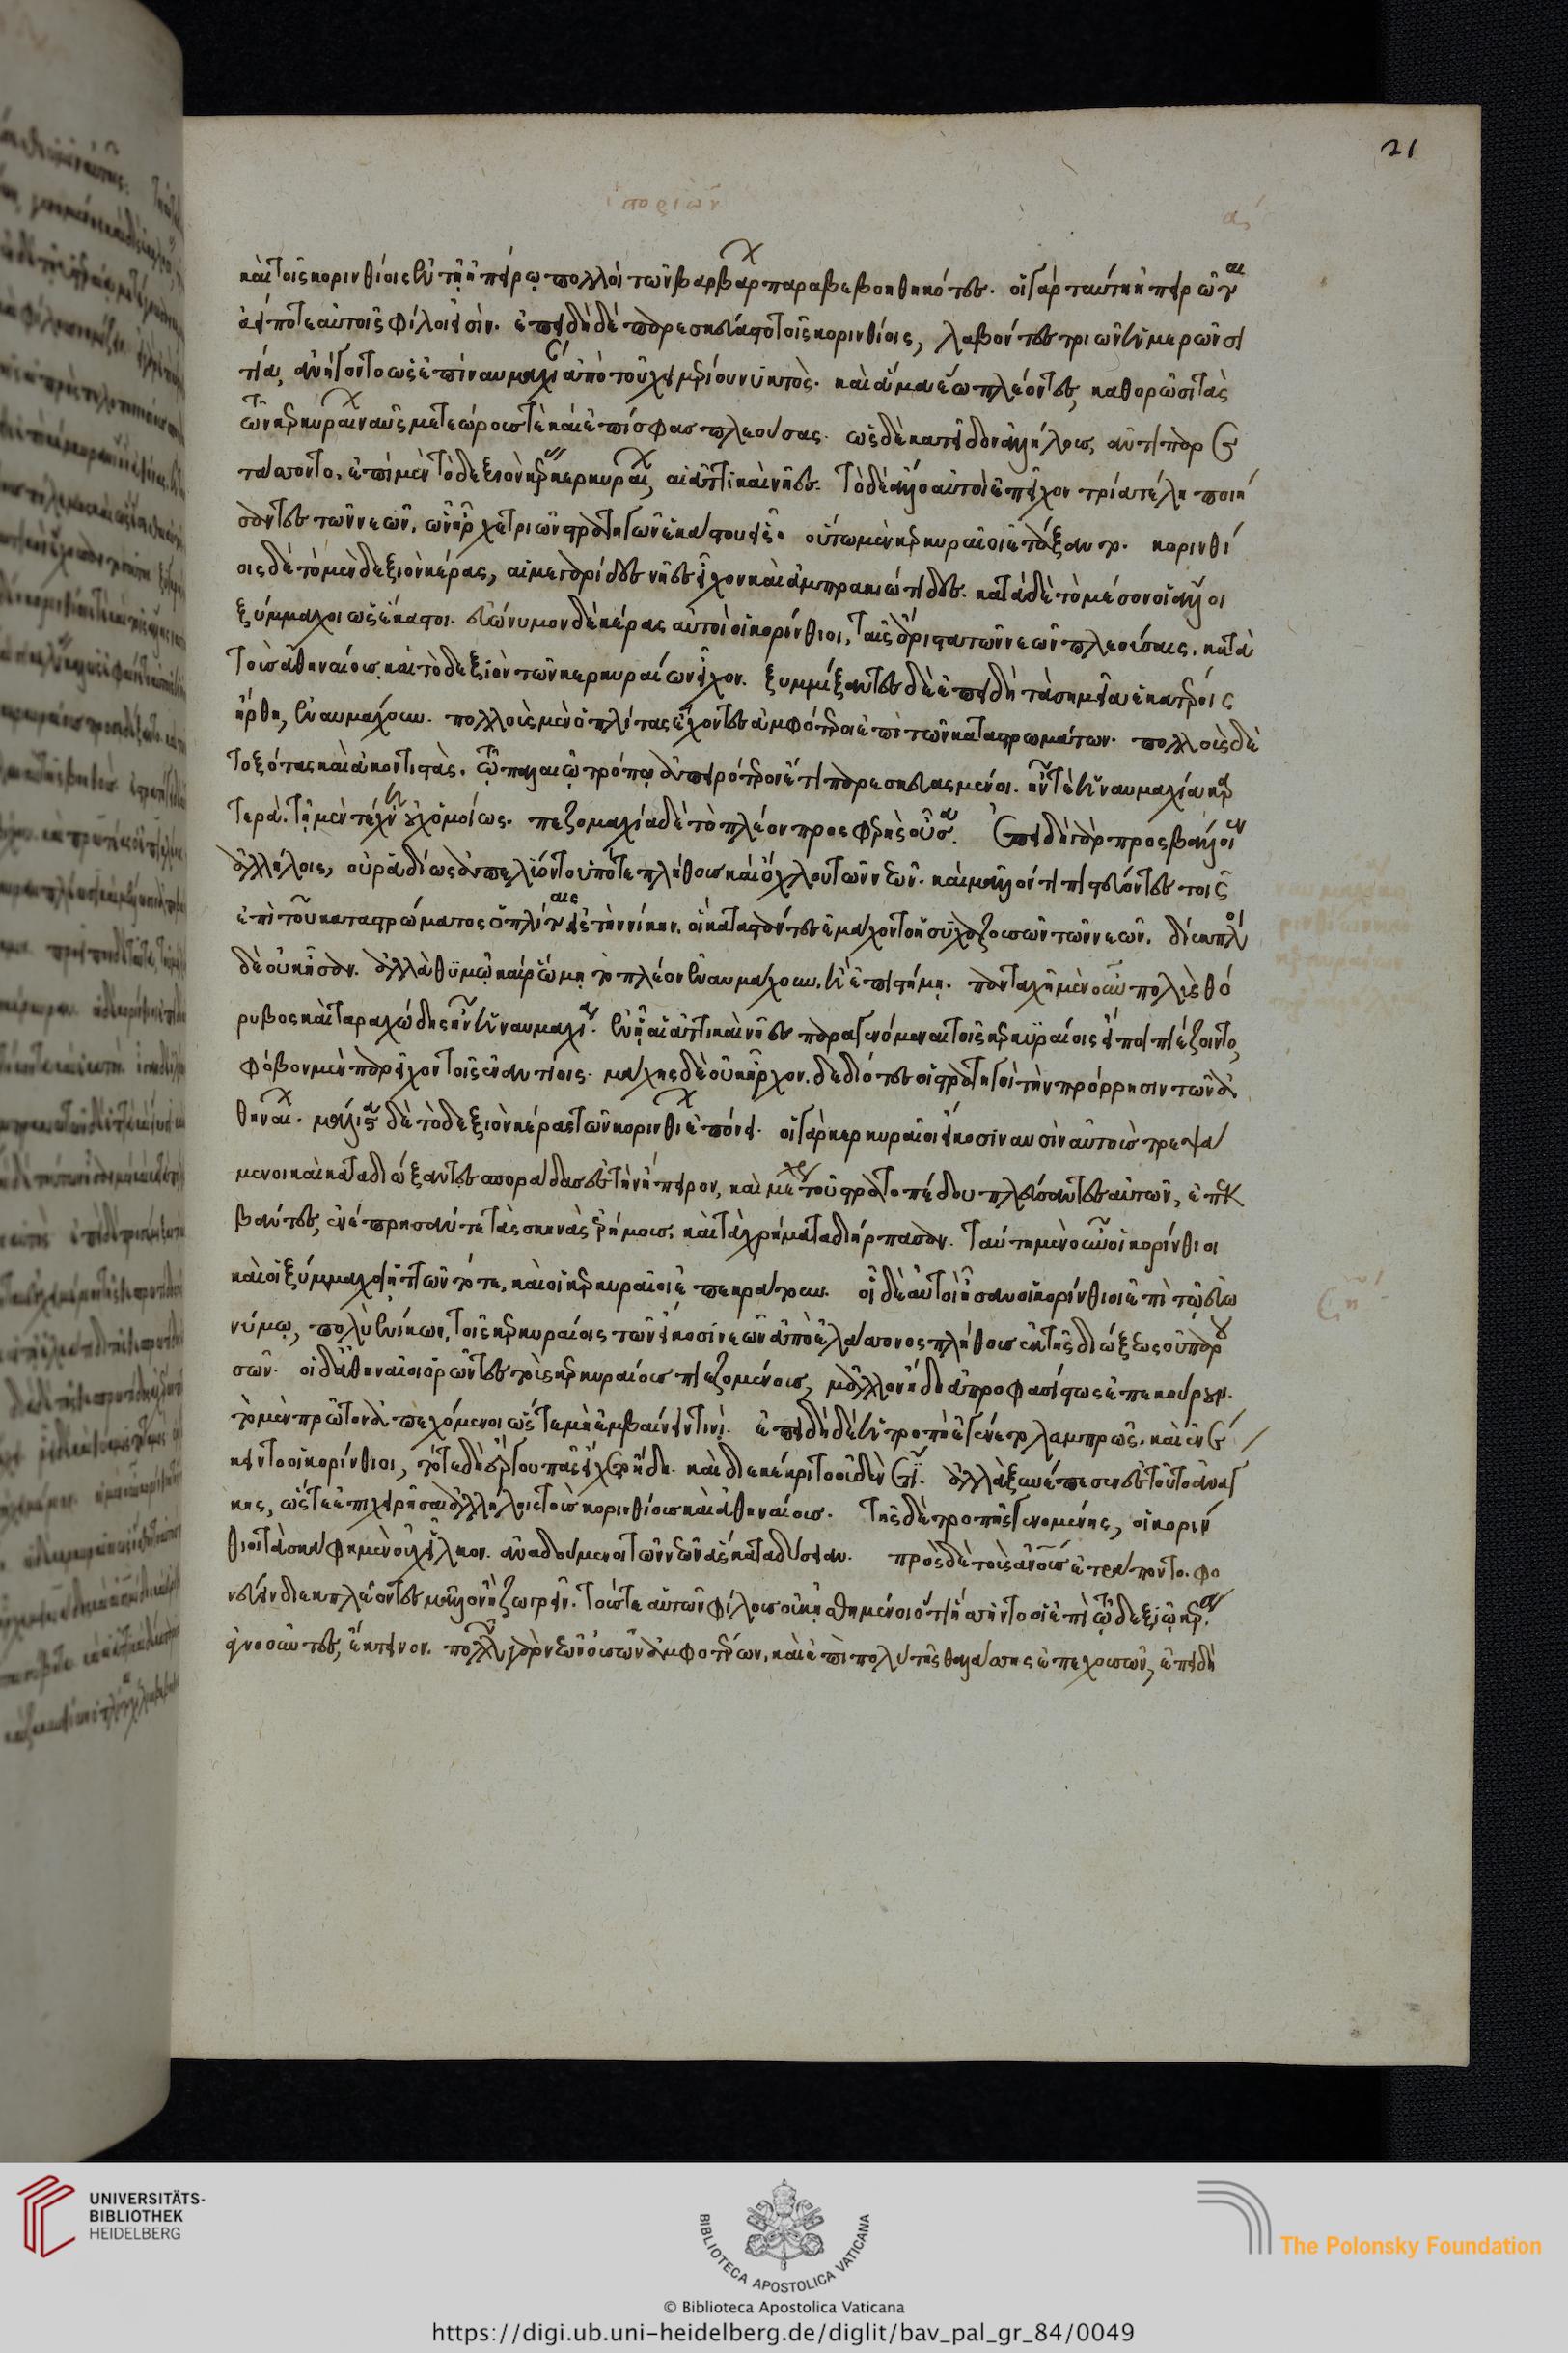 ἱστοριῶν
α
21
καὶ τοῖς κορινθίοις ἐν τῇ ἠπείρῳ πολλοὶ τῶν βαρβάρ παραβεβοηθηκότες. οἱ γὰρ ταύτῃ ἠπειρῶται
ἀεί ποτε αὐτοῖς φίλοι εἰσίν. ἐπειδὴ δὲ παρεσκεύαστο τοῖς κορινθίοις, λαβόντες τριῶν ἡμερῶν σι
τία, ἀνήγοντο ὡς ἐπὶ ναυμαχί ἀπὸ τοῦ χειμερίου νυκτὸς. καὶ ἅμα ἕῳ πλέοντες, καθορῶσι τὰς
τῶν κερκυραί ναῦς μετεώρους τὲ καὶ ἐπὶ σφᾶς πλεούσας. ὡς δὲ κατεῖδον ἀλλήλους, ἀντιπαρε
τάσσοντο. ἐπὶ μὲν τὸ δεξιὸν κέρας κερκυραί, αἱ ἀττικαὶ νῆες. τὸ δὲ ἄλλο αὐτοὶ ἐπεῖχον τρία τέλη ποιή
σαντες τῶν νεῶν. ὧν ἦρχε τριῶν στρατηγῶν ἑκάστου εἷς. οὕτω μὲν κερκυραῖοι ἐτάξαντο. κορινθί
οις δὲ τὸ μὲν δεξιὸν κέρας, αἱ μεγαρίδες νῆες εἶχον καὶ ἀμπρακιώτιδες. κατὰ δὲ τὸ μέσον οἱ ἄλλοι
ξύμμαχοι ὡς ἕκαστοι. εὐώνυμον δὲ κέρας αὐτοὶ οἱ κορίνθιοι, ταῖς ἄριστα τῶν νεῶν πλεούσαις. κατὰ
τοὺς ἀθηναίους καὶ τὸ δεξιὸν τῶν κερκυραίων εἶχον. ξυμμίξαντες δὲ ἐπειδὴ τὰ σημεῖα ἑκατέροις
ἤρθη, ἐναυμάχουν. πολλοὺς μὲν ὁπλίτας ἔχοντες ἀμφότεροι ἐπὶ τῶν καταστρωμάτων. πολλοὺς δὲ
τοξότας καὶ ἀκοντιστὰς. τῷ παλαιῷ τρόπῳ ἀπειρότερον ἔτι παρεσκευασμένοι. ἦν τὲ ἡ ναυμαχία καρ
τερὰ. τῇ μὲν τέχνῃ οὐχ ὁμοίως. πεζομαχίᾳ δὲ τὸ πλέον προσφερὴς οὖσα. ἐπειδὴ γὰρ προσβάλλοιεν
ἀλλήλοις, οὐ ῥᾳδίως ἀπελύοντο ὑπό τε πλήθους καὶ ὄχλου τῶν νεῶν. καὶ μᾶλλόν τι πιστεύοντες τοῖς
ἐπὶ τοῦ καταστρώματος ὁπλίταις ἐς τὴν νίκην. οἳ καταστάντες ἐμάχοντο ἡσυχαζουσῶν τῶν νεῶν. διέκπλοι
δὲ οὐκ ἦσαν. ἀλλὰ θυμῷ καὶ ῥώμῃ τὸ πλέον ἐναυμάχουν, ἢ ἐπιστήμῃ. πανταχῇ μὲν οὖν πολὺς θό
ρυβος καὶ ταραχώδης ἦν ἡ ναυμαχία. ἐν ᾗ αἱ ἀττικαὶ νῆες παραγενόμεναι τοῖς κερκυραίοις εἴ πῃ πιέζοιντο,
φόβον μὲν παρεῖχον τοῖς ἐναντίοις. μάχης δὲ οὐκ ἦρχον. δεδιότες οἱ στρατηγοὶ τὴν πρόρρησιν τῶν ἀ
θηναί. μάλιστα δὲ τὸ δεξιὸν κέρας τῶν κορινθί ἐπόνει. οἱ γὰρ κερκυραῖοι εἴκοσι ναυσὶν αὐτοὺς τρεψά
μενοι καὶ καταδιώξαντες σποράδας ἐς τὴν ἤπειρον, καὶ μέχρι τοῦ στρατοπέδου πλεύσαντες αὐτῶν, ἐπεκ
βάντες, ἐνέπρησάν τε τὰς σκηνὰς ἐρήμους. καὶ τὰ χρήματα διήρπασαν. ταύτῃ μὲν οὖν οἱ κορίνθιοι
καὶ οἱ ξύμμαχοι ἡττῶντό τε, καὶ οἱ κερκυραῖοι ἐπεκράτουν. ᾗ δὲ αὐτοὶ ἦσαν οἱ κορίνθιοι ἐπὶ τῷ εὐω
νύμῳ, πολὺ ἐνίκων, τοῖς κερκυραίοις τῶν εἴκοσι νεῶν ἀπὸ ἐλάσσονος πλήθους ἐκ τῆς διώξεως οὐ παρου
σῶν. οἱ δ' ἀθηναῖοι ὁρῶντες τοὺς κερκυραίους πιεζομένους, μᾶλλον ἤδη ἀπροφασίστως ἐπεκούρουν.
τὸ μὲν πρῶτον ἀπεχόμενοι ὥστε μὴ ἐμβαίνειν τινὶ. ἐπειδὴ δὲ ἡ τροπὴ ἐγένετο λαμπρῶς. καὶ ἐνέ
κειντο οἱ κορίνθιοι, τότε δὴ ἔργου πᾶς εἴχετο ἤδη. καὶ διεκέκριτο οὐδὲν ἔτι. ἀλλὰ ξυνέπεσεν ἐς τοῦτο ἀνάγ
κης, ὥστε ἐπιχειρῆσαι ἀλλήλοις τοὺς κορινθίους καὶ ἀθηναίους. τῆς δὲ τροπῆς γενομένης, οἱ κορίν
θιοι τὰ σκάφη μὲν οὐχ εἷλκον. ἀναδούμενοι τῶν νεῶν ἃς καταδύσειαν. πρὸς δὲ τοὺς ἀνους ἐτράποντο. φο
νεύειν διεκπλέοντες μᾶλλον ἢ ζωγρεῖν. τούς τε αὐτῶν φίλους οὐκ ᾐσθημένοι ὅτι ἥσσηντο οἱ ἐπὶ τῷ δεξιῷ κέρᾳ.
ἀγνοοῦντες, ἔκτεινον. πολλῶν γὰρ νεῶν οὐσῶν ἀμφοτέρων. καὶ ἐπὶ πολὺ τῆς θαλάσσης ἐπεχουσῶν, ἐπειδὴ
UNIVERSITÄTS-
BIBLIOTHEK
HEIDELBERG
BIBLIOTECA APOSTOLICA VATICANA
The Polonsky Foundation
© Biblioteca Apostolica Vaticana
https://digi.ub.uni-heidelberg.de/diglit/bav_pal_gr_84/0049